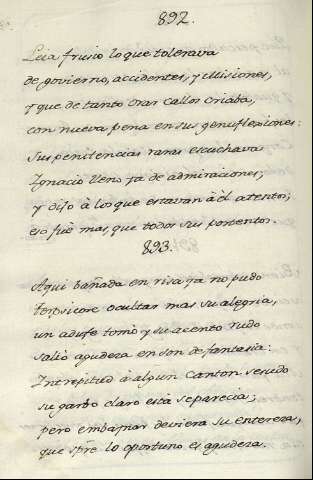 892.
Leia frusio lo que tolerava
de govierno, accidentes, y Misiones,
y que de tanto orar callos criaba,
con nueva pena en sus genuflexiones:
Sus penitencias raras escuchava
Ignacio lleno ya de admiraciones;
y dijo à los que estavan à èl atentos;
eso fuè mas, que todos sus portentos.
893.
Aqui bañada en risa ya no pudo
Terpsicore ocultar mas su alegria,
un adufe tomò y su acento rudo
saliò agudeza en son de fantasia:
Intrepitud à algun Canton sesudo
su garbo claro està separecia;
pero embaynar deviera su entereza,
que spre. lo oportuno es agudeza.